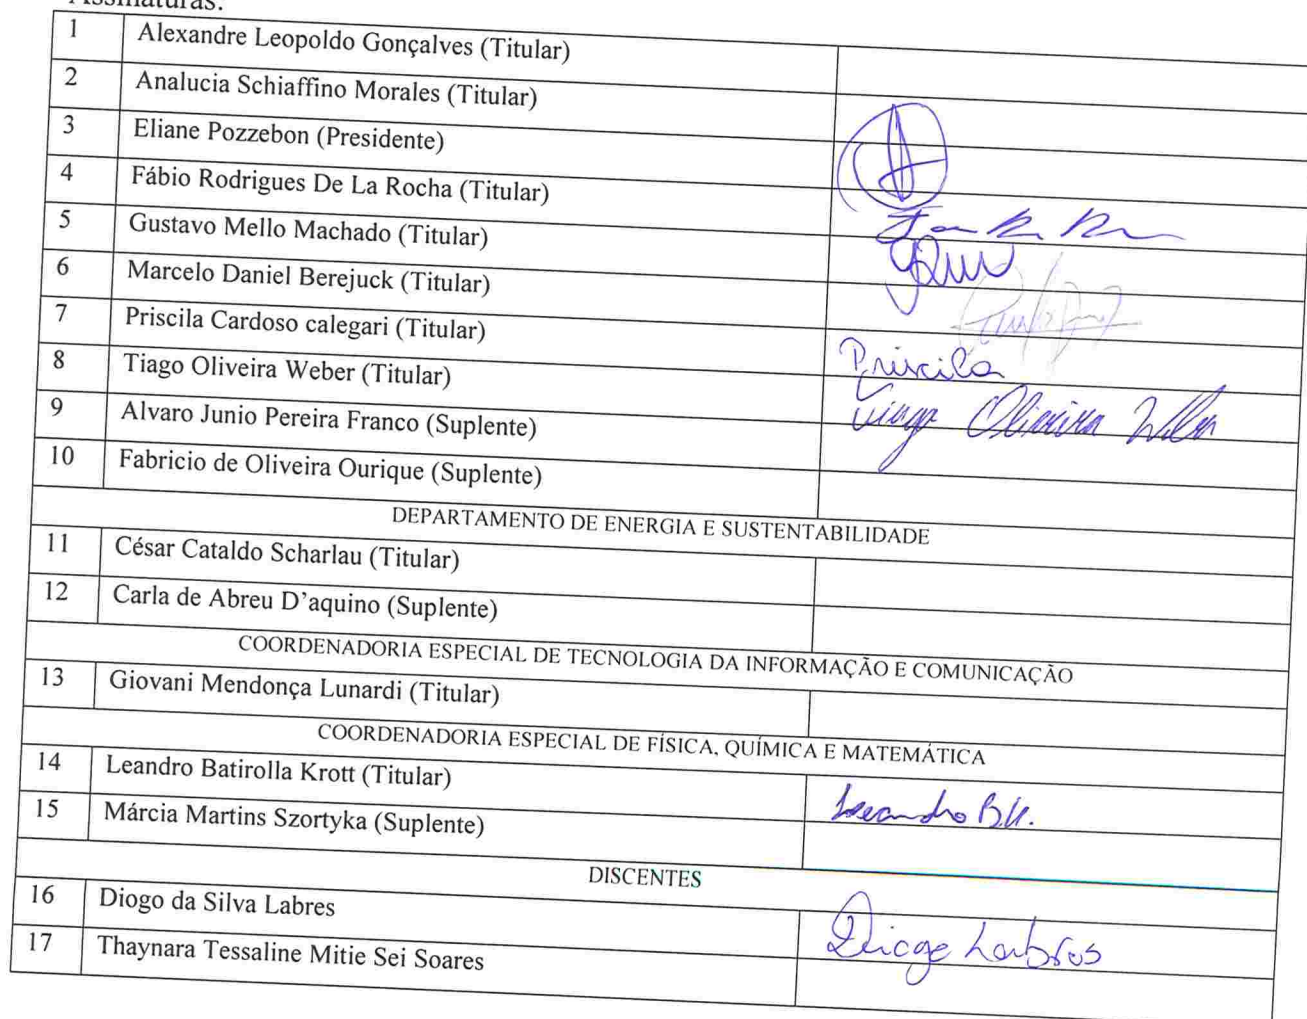 Assinaturas:
1 Alexandre Leopoldo Gonçalves (Titular)
2 Analucia Schiaffino Morales (Titular)
3 Eliane Pozzebon (Presidente)
4 Fábio Rodrigues De La Rocha (Titular)
5 Gustavo Mello Machado (Titular)
6 Marcelo Daniel Berejuck (Titular)
7 Priscila Cardoso calegari (Titular) Priscila
8 Tiago Oliveira Weber (Titular) Tiago Oliveira Weber
9 Alvaro Junio Pereira Franco (Suplente)
10 Fabricio de Oliveira Ourique (Suplente)
DEPARTAMENTO DE ENERGIA E SUSTENTABILIDADE
11 César Cataldo Scharlau (Titular)
12 Carla de Abreu D'aquino (Suplente)
COORDENADORIA ESPECIAL DE TECNOLOGIA DA INFORMAÇÃO E COMUNICAÇÃO
13 Giovani Mendonça Lunardi (Titular)
COORDENADORIA ESPECIAL DE FÍSICA, QUÍMICA E MATEMÁTICA
14 Leandro Batirolla Krott (Titular) Leandro B.K.
15 Márcia Martins Szortyka (Suplente)
DISCENTES
16 Diogo da Silva Labres Diogo Labres
17 Thaynara Tessaline Mitie Sei Soares